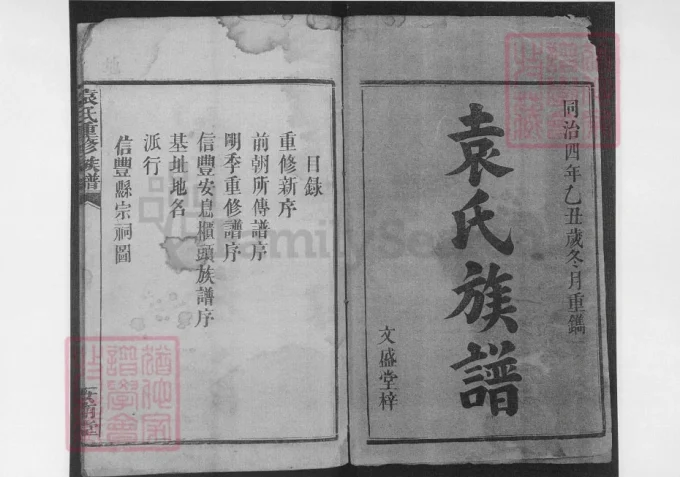 同治四年乙丑歲冬月重鐫
袁氏族譜
文盛堂梓
目錄
重修新序
前朝所傳譜序
明季重修譜序
信豐安息櫃頭族譜序
基址地名
派行
信豐縣宗祠圖
袁氏重修族譜
FamilySearch